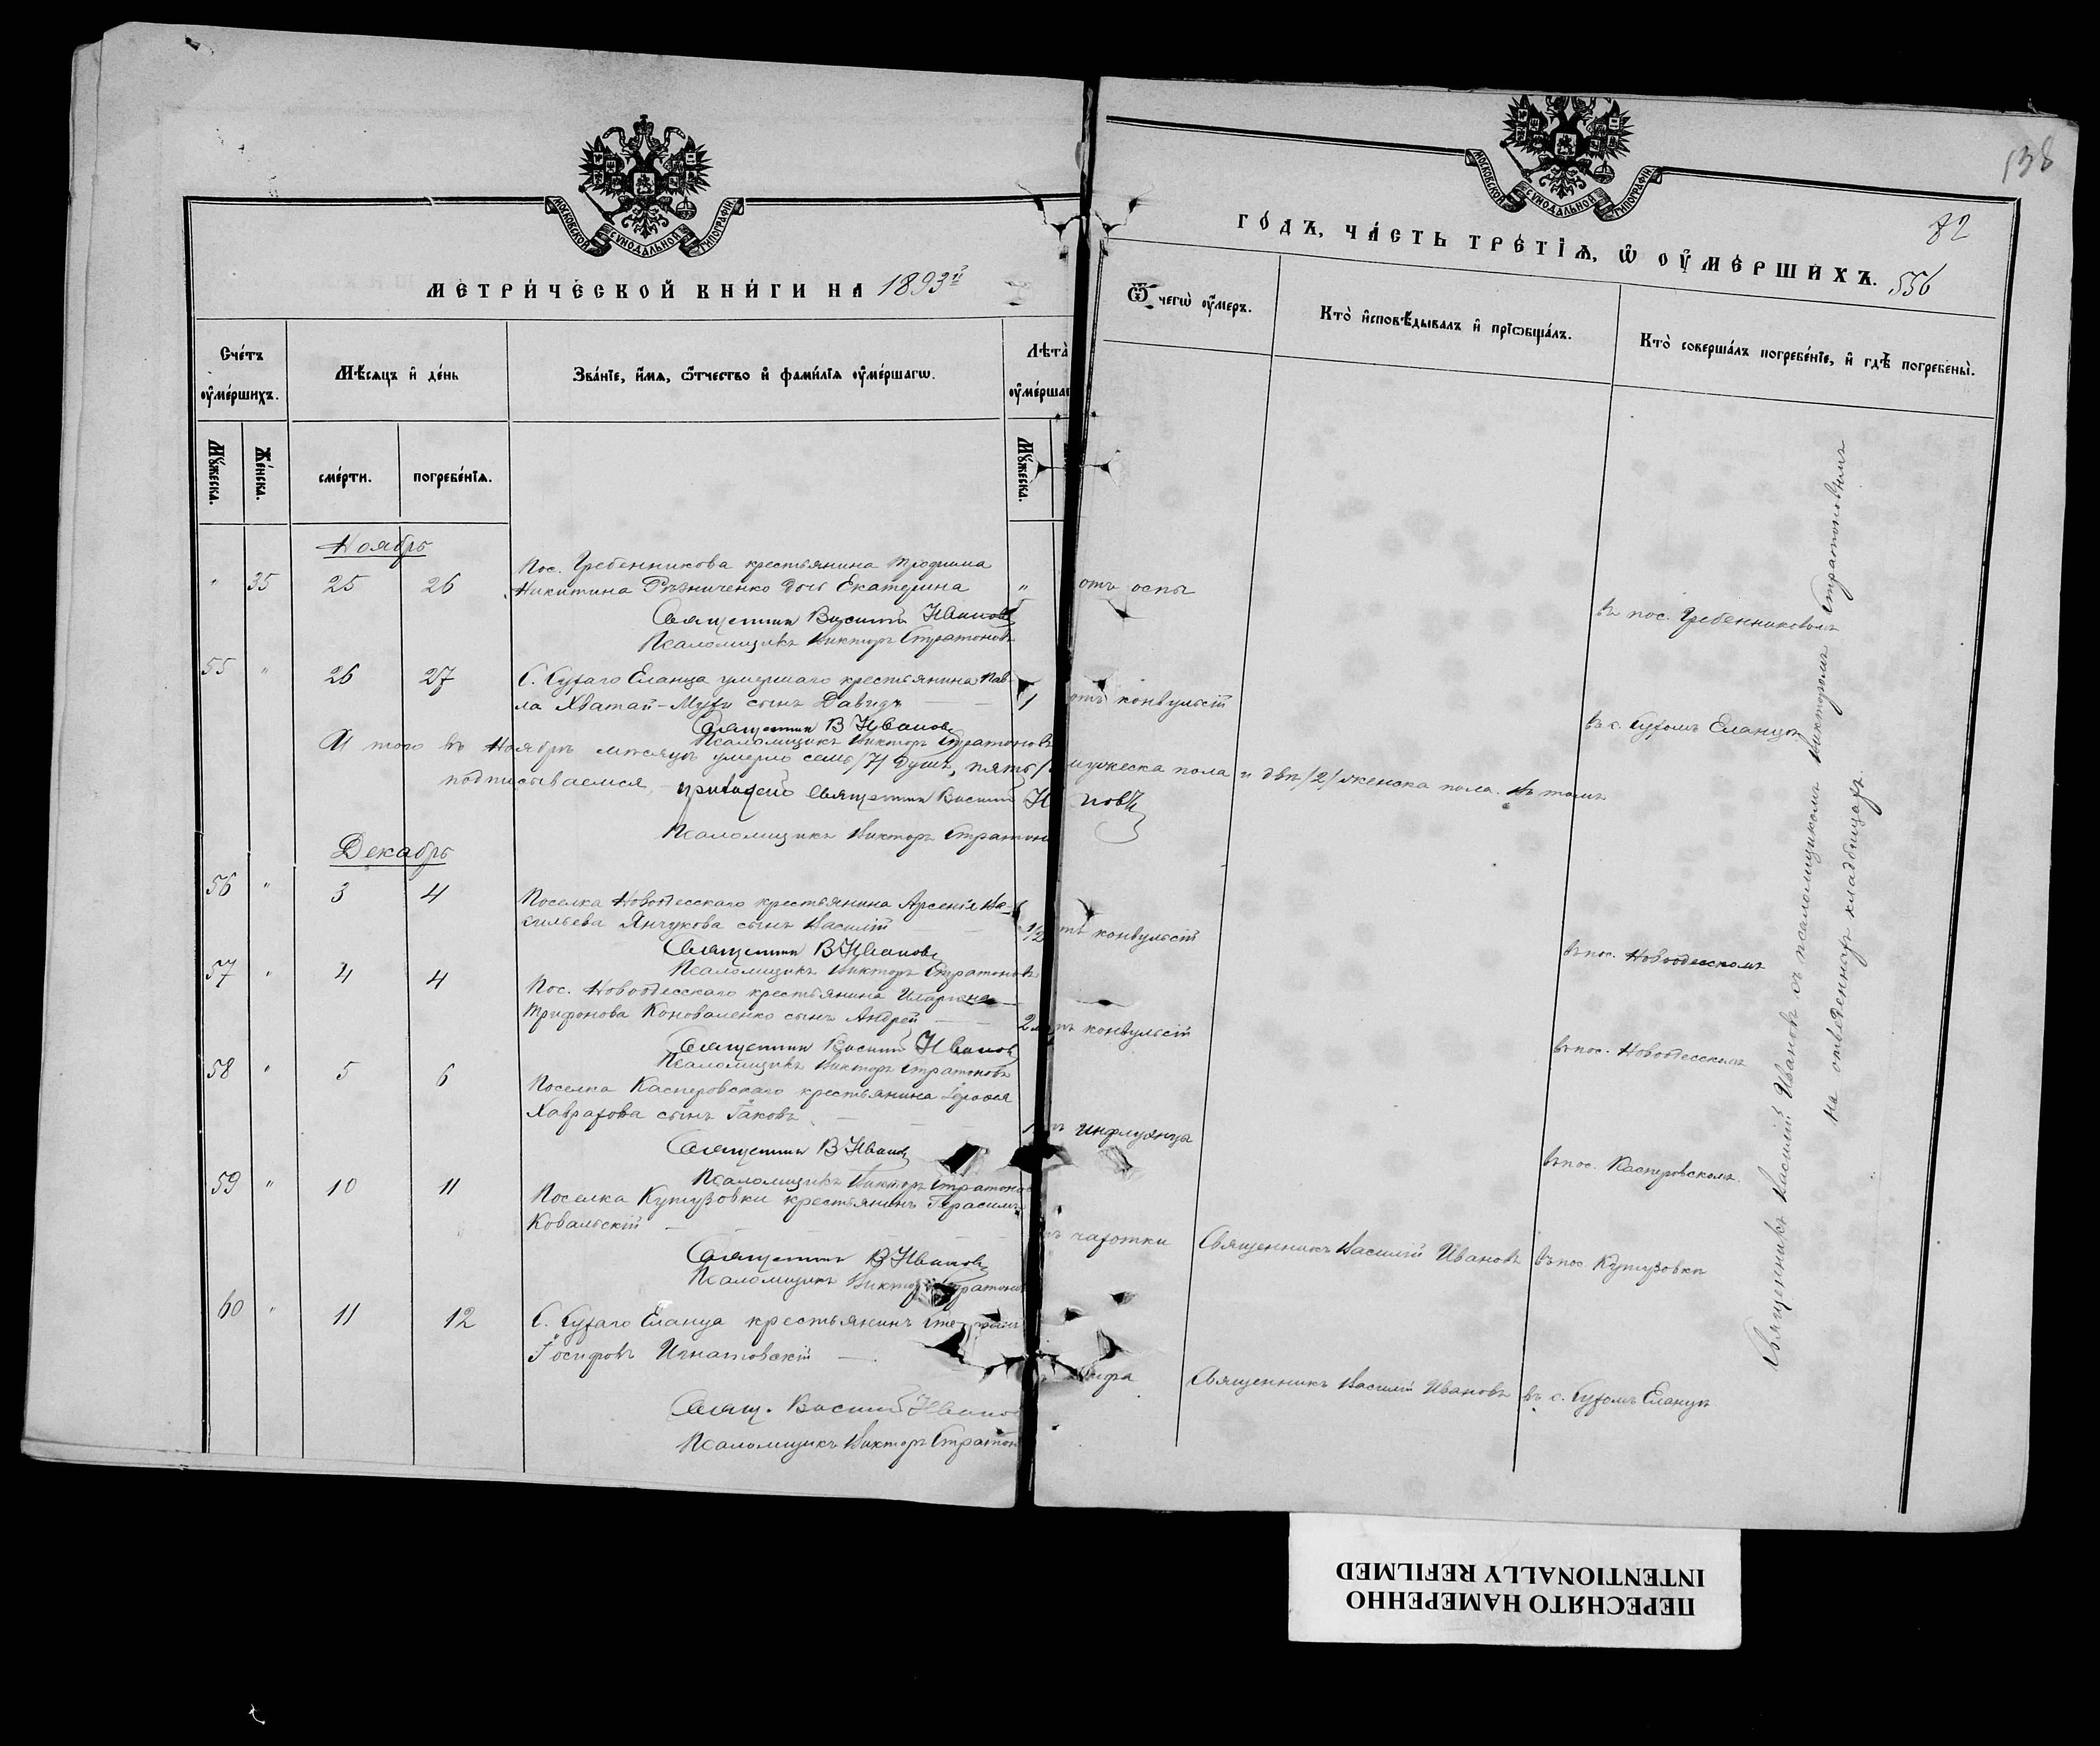 МОСКОВСКОЙ СѴНОДАЛЬНОЙ ТИПОГРАФІИ
МЕТРИ́ЧЕСКОЙ КНИ́ГИ НА 1893й
Сче́тъ ᲂу҆ме́ршихъ.
Мѣ́сяцъ и҆ де́нь
Зва́нїе, и҆́мѧ, ѻ҆́тчество и҆ фами́лїѧ ᲂу҆ме́ршагѡ.
Лѣта̀ ᲂу҆ме́ршаг
Мꙋ́жеска.
Же́нска.
сме́рти.
погребе́нїѧ.
Мꙋ́жеска.
Ноябрь
" 35 25 26 Пос. Гребенникова крестьянина Трофима
Никитина Рѣзниченко дочь Екатерина "
Священникъ Василій Ивановъ
Псаломщикъ Викторъ Стратоновъ
55 " 26 27 С. Сухаго Еланца умершаго крестьянина Пав-
ла Хватай-Мухи сынъ Давидъ 1
Священникъ В Ивановъ
Псаломщикъ Викторъ Стратоновъ
А того въ Ноябрѣ мѣсяцѣ умерло семь /7/ душъ, пять / мужеска пола и двѣ /2/ женска пола. Въ томъ
подписываемся, приходскій Священникъ Василій И новъ
Псаломщикъ Викторъ Стратон
Декабрь
56 " 3 4 Поселка Новоодесскаго крестьянина Арсенія Ва-
сильева Янчукова сынъ Василій 1/2
Священникъ В Ивановъ
Псаломщикъ Викторъ Стратоновъ
57 " 4 4 Пос. Новоодесскаго крестьянина Иларіона
Трифонова Коноваленко сынъ Андрей 2
Священникъ Василій Ивановъ
Псаломщикъ Викторъ Стратоновъ
58 " 5 6 Поселка Касперовскаго крестьянина
Хаврахова сынъ Іаковъ
Священникъ В Ивановъ
Псаломщикъ Викторъ Стратонов
59 " 10 11 Поселка Кутузовки крестьянинъ Герасимъ
Ковальскій
Священникъ В Ивановъ
Псаломщикъ Викторъ Стратонов
60 " 11 12 С. Сухаго Еланца крестьянинъ
Іосифовъ Игнатовскій
Свящ. Василій Иванов
Псаломщикъ Викторъ Стратон
138
МОСКОВСКОЙ СѴНОДАЛЬНОЙ ТИПОГРАФІИ
82
ГО́ДЪ, ЧА́СТЬ ТРЕ́ТЇѦ, Ѡ҆ ОУ҆МЕ́РШИХЪ. 556
Ѿ чегѡ̀ ᲂу҆́меръ.
Кто̀ и҆сповѣ́дывалъ и҆ прїѡбща́лъ.
Кто̀ соверша́лъ погребе́нїе, и҆ гдѣ̀ погребены̀.
отъ оспы
въ пос. Гребенниковомъ
отъ конвульсій
въ с. Сухомъ Еланцѣ
тъ конвульсій
въ пос. Новоодесскомъ
тъ конвульсій
въ пос. Новоодесскомъ
инфлуэнца
въ пос. Касперовскомъ.
чахотки Священникъ Василій Ивановъ въ пос. Кутузовки
ифа Священникъ Василій Ивановъ въ с. Сухомъ Еланцѣ
Священникъ Василій Ивановъ съ псаломщикомъ Викторомъ Стратоновымъ
на отведенныхъ кладбищахъ
ПЕРЕСНЯТО НАМЕРЕННО
INTENTIONALLY REFILMED